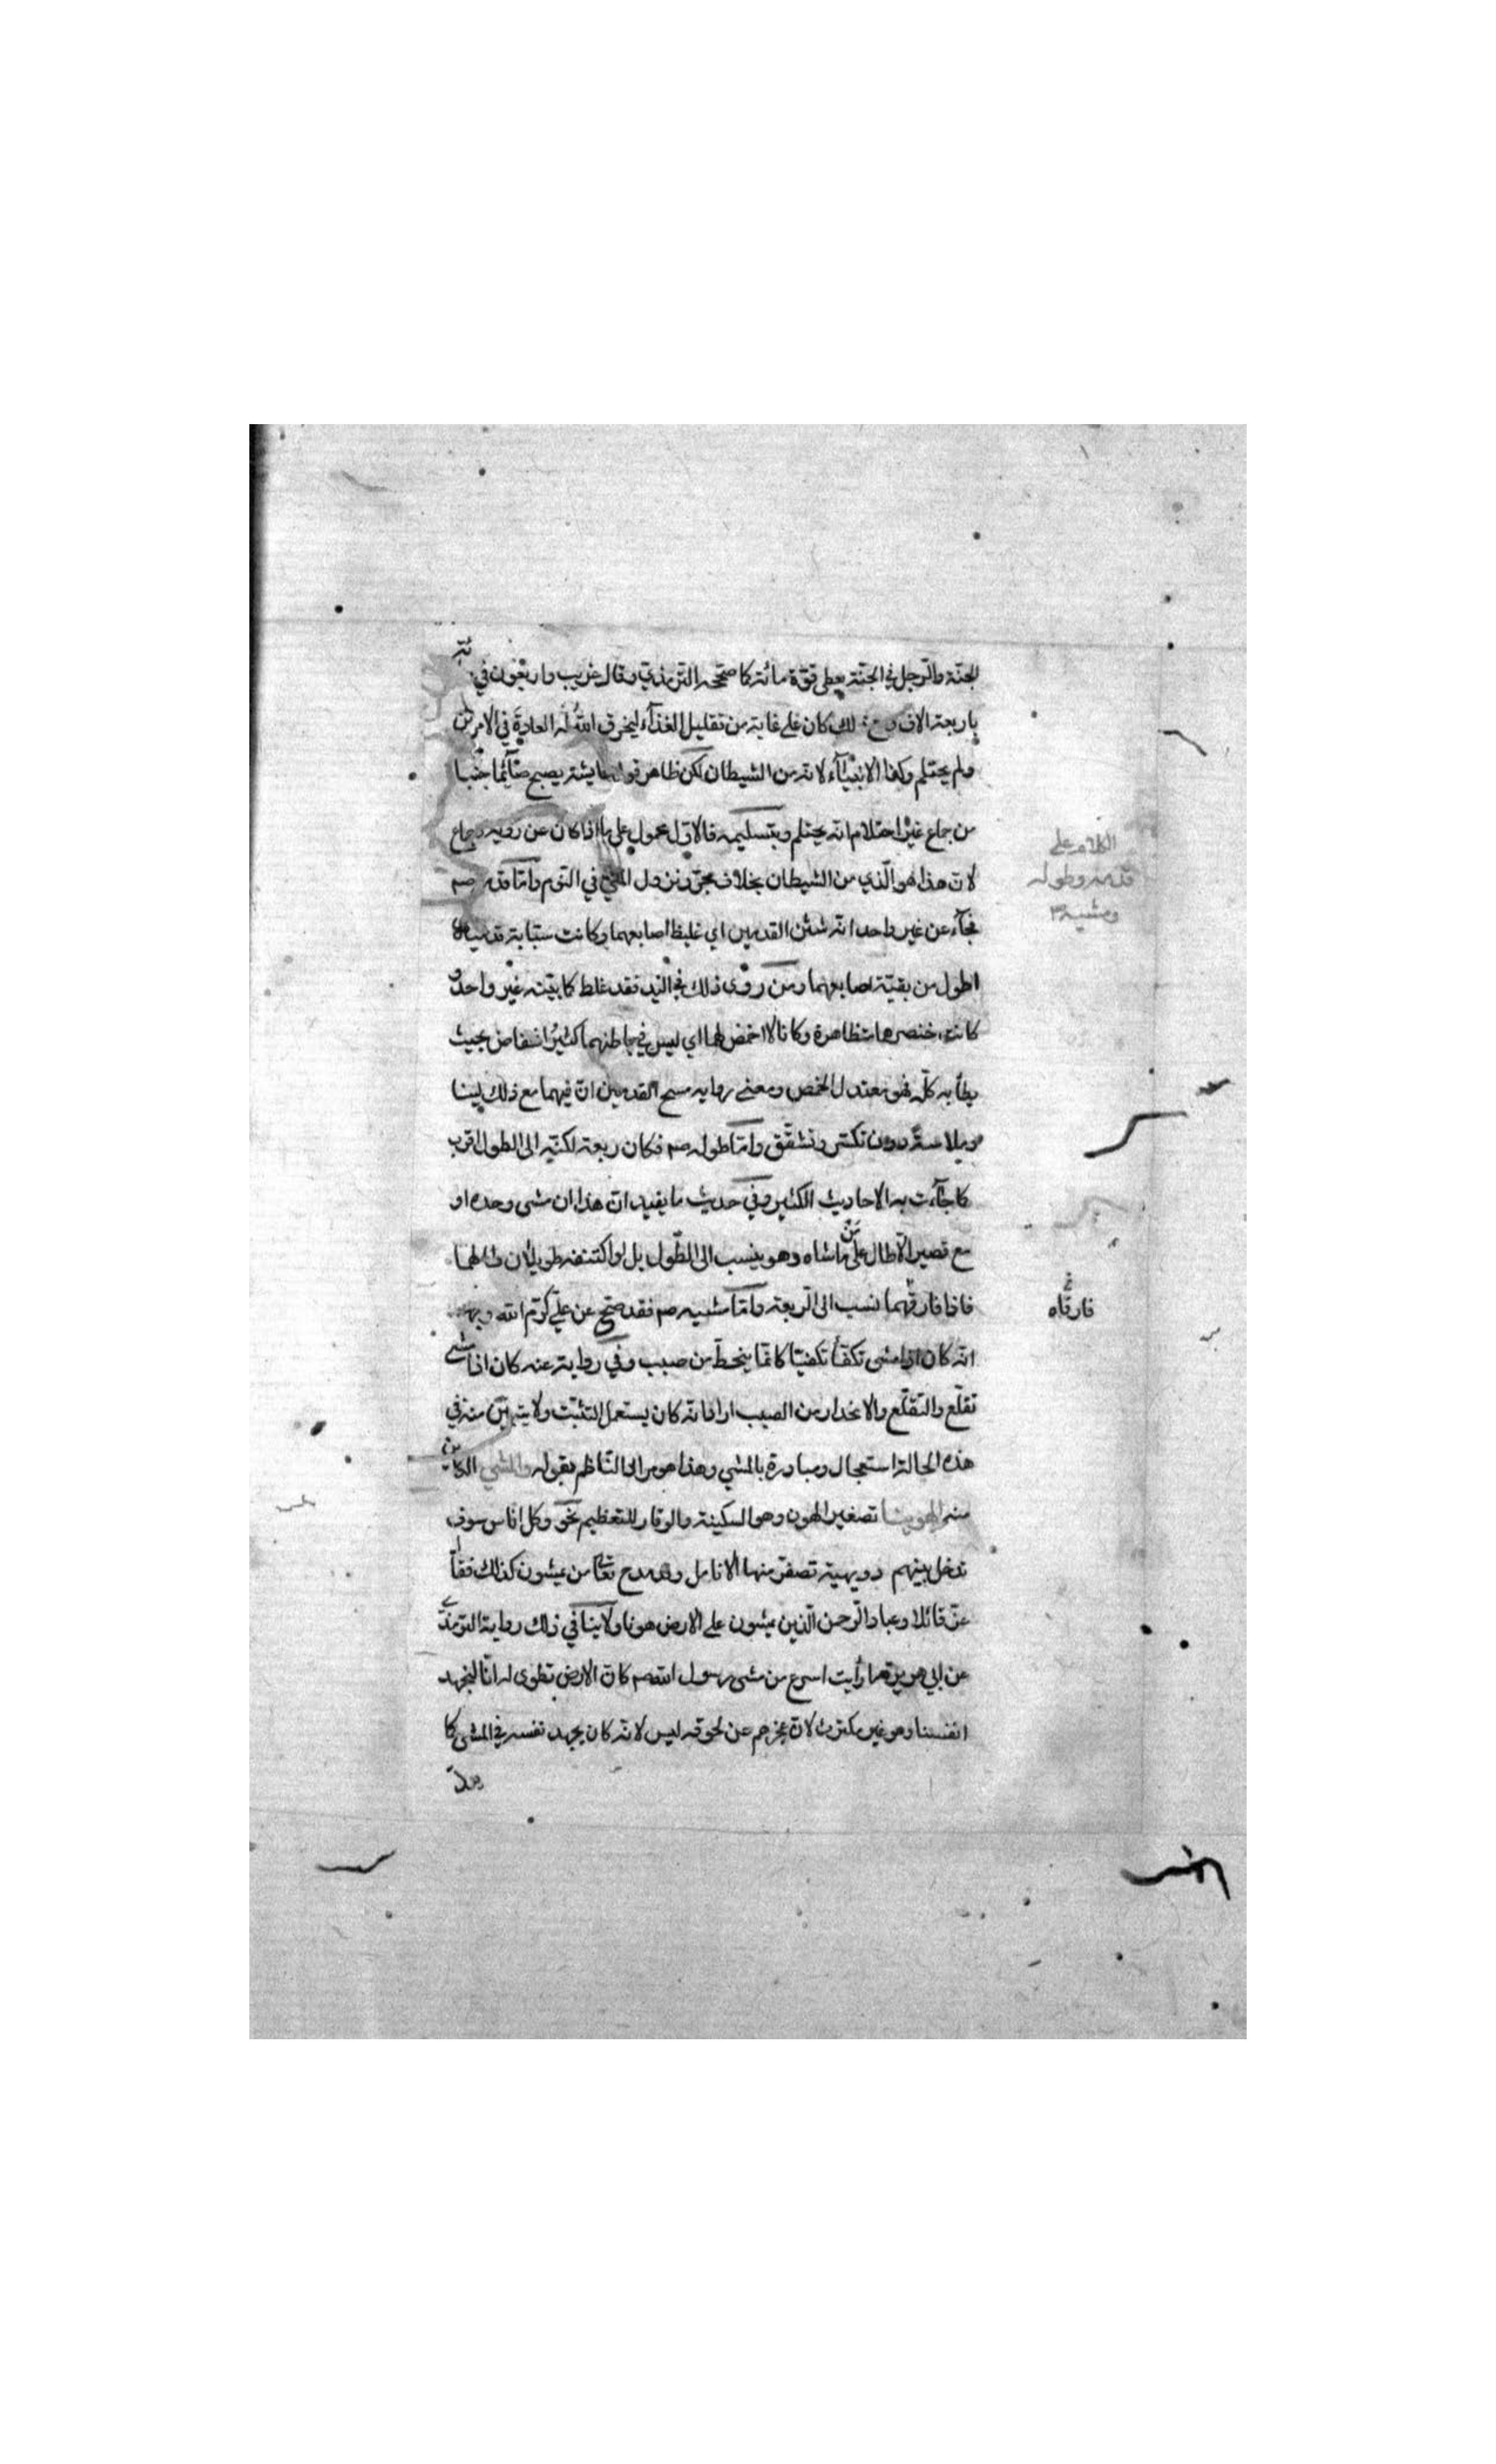 الجنّة والرّجل في الجنّة يعطى قوّة مائة كما صحّحه الترمذي وقال غريب واربعون في مئة
باربعة الاف ومع ذلك كان على غاية من تقليل الغذآء ليخرق الله له العادة في الامرين
ولم يحتلم وكذا الانبيآء لانه من الشيطان لكن ظاهر قول عايشة يصبح صآئما جنبا
من جماع غير احتلام انه يحتلم وبتسليمه فالاوّل محمول على ما اذا كان عن روية جماع
لانّ هذا هو الّذي من الشيطان بخلاف مجرّد نزول المني في النوم وامّا قدمه صم
فجآء عن غير واحد انّه شثن القدمين اي غليظ اصابعهما وكانت سبّابة قدميه
اطول من بقيّة اصابعهما ومن روى ذلك في اليد فقد غلط كما بيّنه غير واحد و
كانت خنصرها متظاهرة وكانا لا اخمص لهما اي ليس في باطنهما كثير انخفاض بحيث
يطأ به كلّه فهو معتدل الخمص ومعنى رواية مسيح القدمين انّ فيهما مع ذلك لينا
وملاسة دون تكسّر وتشقّق وامّا طوله صم فكان ربعة لكنّه الى الطول اقرب
كما جآءت به الاحاديث الكثيرة وفي حديث ما يفيد انّ هذا ان مشى وحده او
مع قصير الّا طال على من ماشاه وهو ينسب الى الطّول بل لو اكتنفه طويلان طالهما
فاذا فارقهما نسب الى الربعة وامّا مشيه صم فقد صحّ عن علي كرّم الله وجهه
انّه كان اذا مشى تكفّأ تكفيّا كانّما ينحطّ من صبب وفي رواية عنه كان اذا مشى
تقلّع والتقلّع والانحدار من الصبب ارادا انه كان يستعمل التثبّت ولا يتبيّن منه في
هذه الحالة استعجال ومبادرة بالمشي وهذا هو مراد النّاظم بقوله والمشي الكائن
منه الهوينا تصغير الهون وهو السكينة والوقار للتعظيم نحو وكل اناس سوف
تدخل بينهم دويهية تصفرّ منها الانامل وقد مدح تعالى من يمشون كذلك فقال
عزّ قائلا وعباد الرّحمن الّذين يمشون على الارض هونا ولا ينافي ذلك رواية الترمذي
عن ابي هريرة ما رأيت اسرع من مشى رسول الله صم كانّ الارض تطوى له انّا لنجهد
انفسنا وهو غير مكترث لانّ عجزهم عن لحوقه ليس لانّه كان يجهد نفسه في المشى كما
الكلام على
قدمه وطوله
ومشيه
فارقاه